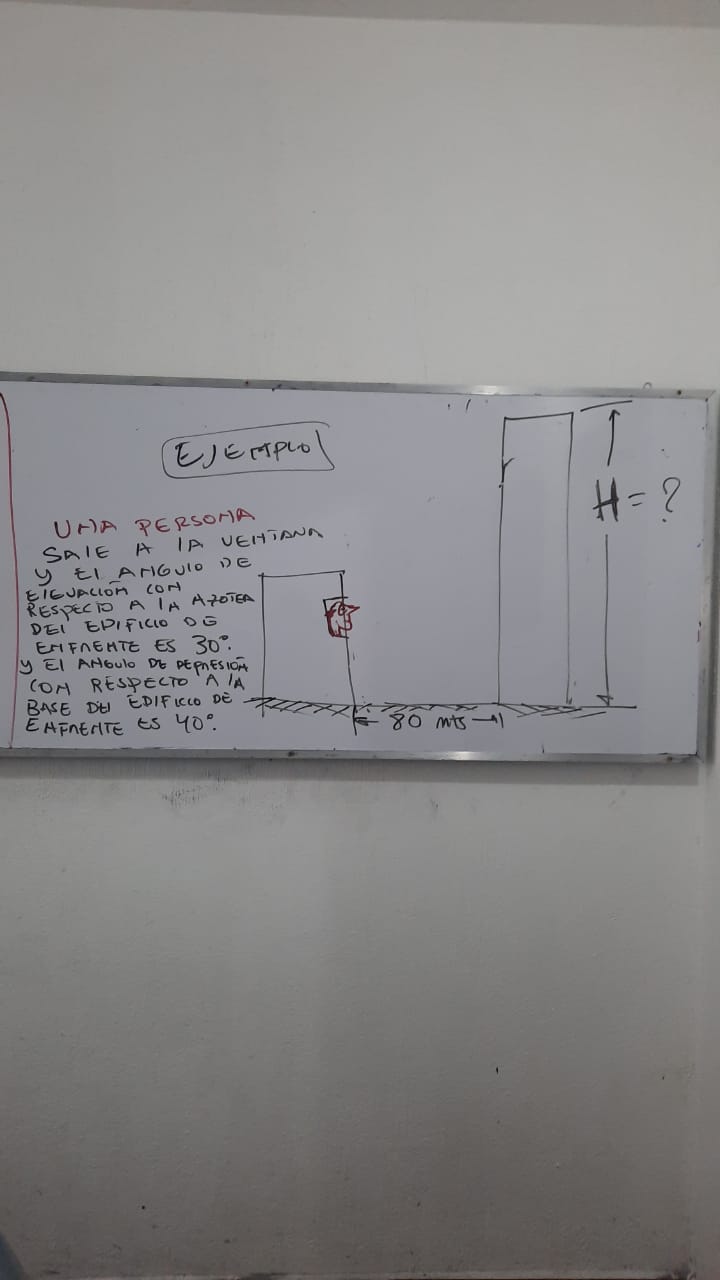 EJEMPLO
UNA PERSONA
SALE A LA VENTANA
Y EL ANGULO DE
ELEVACIÓN CON
RESPECTO A LA AZOTEA
DEL EDIFICIO DE
ENFRENTE ES 30°.
Y EL ANGULO DE DEPRESIÓN
CON RESPECTO A LA
BASE DEL EDIFICIO DE
ENFRENTE ES 40°.
H = ?
80 mts